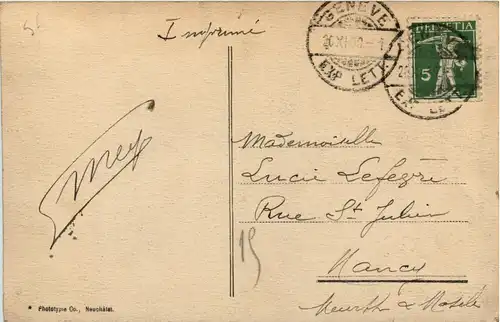 Imprimé
GENÈVE
EXP. LETT.
HELVETIA
5
Mademoiselle
Lucie
Rue St Julien
15
Nancy
Meurthe & Moselle
* Phototypie Co., Neuchâtel.